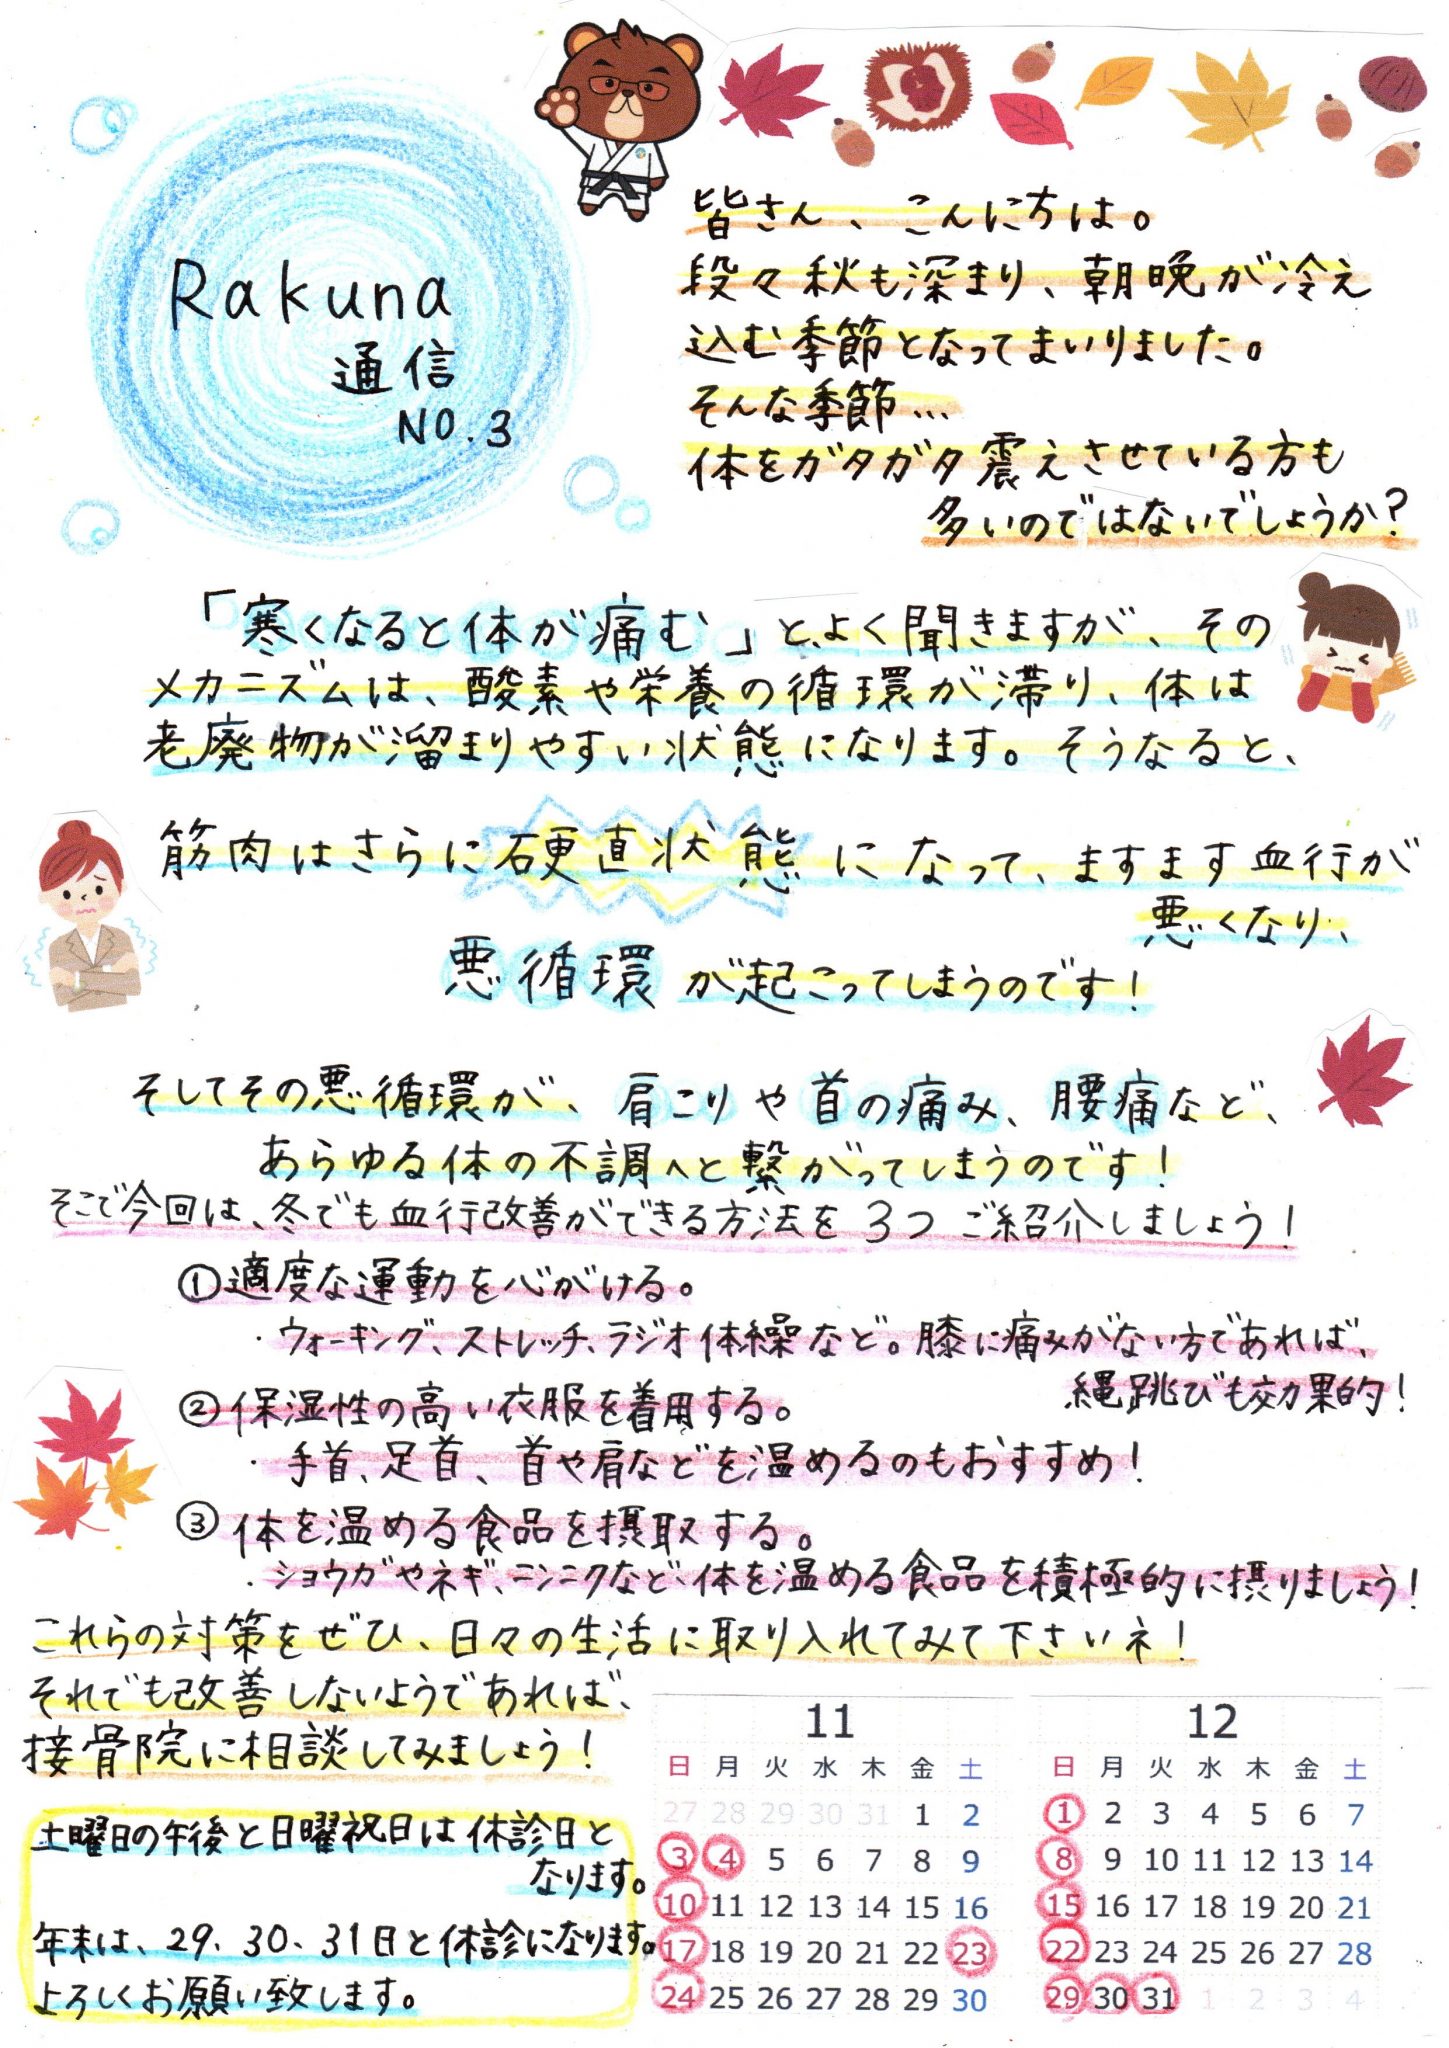 Rakuna
通信
NO.3
皆さん、こんにちは。
段々秋も深まり、朝晩が冷え
込む季節となってまいりました。
そんな季節…
体をガタガタ震えさせている方も
多いのではないでしょうか?
「寒くなると体が痛む」と、よく聞きますが、その
メカニズムは、酸素や栄養の循環が滞り、体は
老廃物が溜まりやすい状態になります。そうなると、
筋肉はさらに硬直状態になって、ますます血行が
悪くなり、
悪循環が起こってしまうのです!
そしてその悪循環が、肩こりや首の痛み、腰痛など、
あらゆる体の不調へと繋がってしまうのです!
そこで今回は、冬でも血行改善ができる方法を3つご紹介しましょう!
①適度な運動を心がける。
・ウォーキング、ストレッチ、ラジオ体操など。膝に痛みがない方であれば、
縄跳びも効果的!
②保湿性の高い衣服を着用する。
・手首、足首、首や肩などを温めるのもおすすめ!
③体を温める食品を摂取する。
・ショウガやネギ、ニンニクなど、体を温める食品を積極的に摂りましょう!
これらの対策をぜひ、日々の生活に取り入れてみて下さいネ!
それでも改善しないようであれば、
接骨院に相談してみましょう!
土曜日の午後と日曜祝日は休診日と
なります。
年末は、29、30、31日と休診になります。
よろしくお願い致します。
11
日 月 火 水 木 金 土
27 28 29 30 31 1 2
3 4 5 6 7 8 9
10 11 12 13 14 15 16
17 18 19 20 21 22 23
24 25 26 27 28 29 30
12
日 月 火 水 木 金 土
1 2 3 4 5 6 7
8 9 10 11 12 13 14
15 16 17 18 19 20 21
22 23 24 25 26 27 28
29 30 31 1 2 3 4